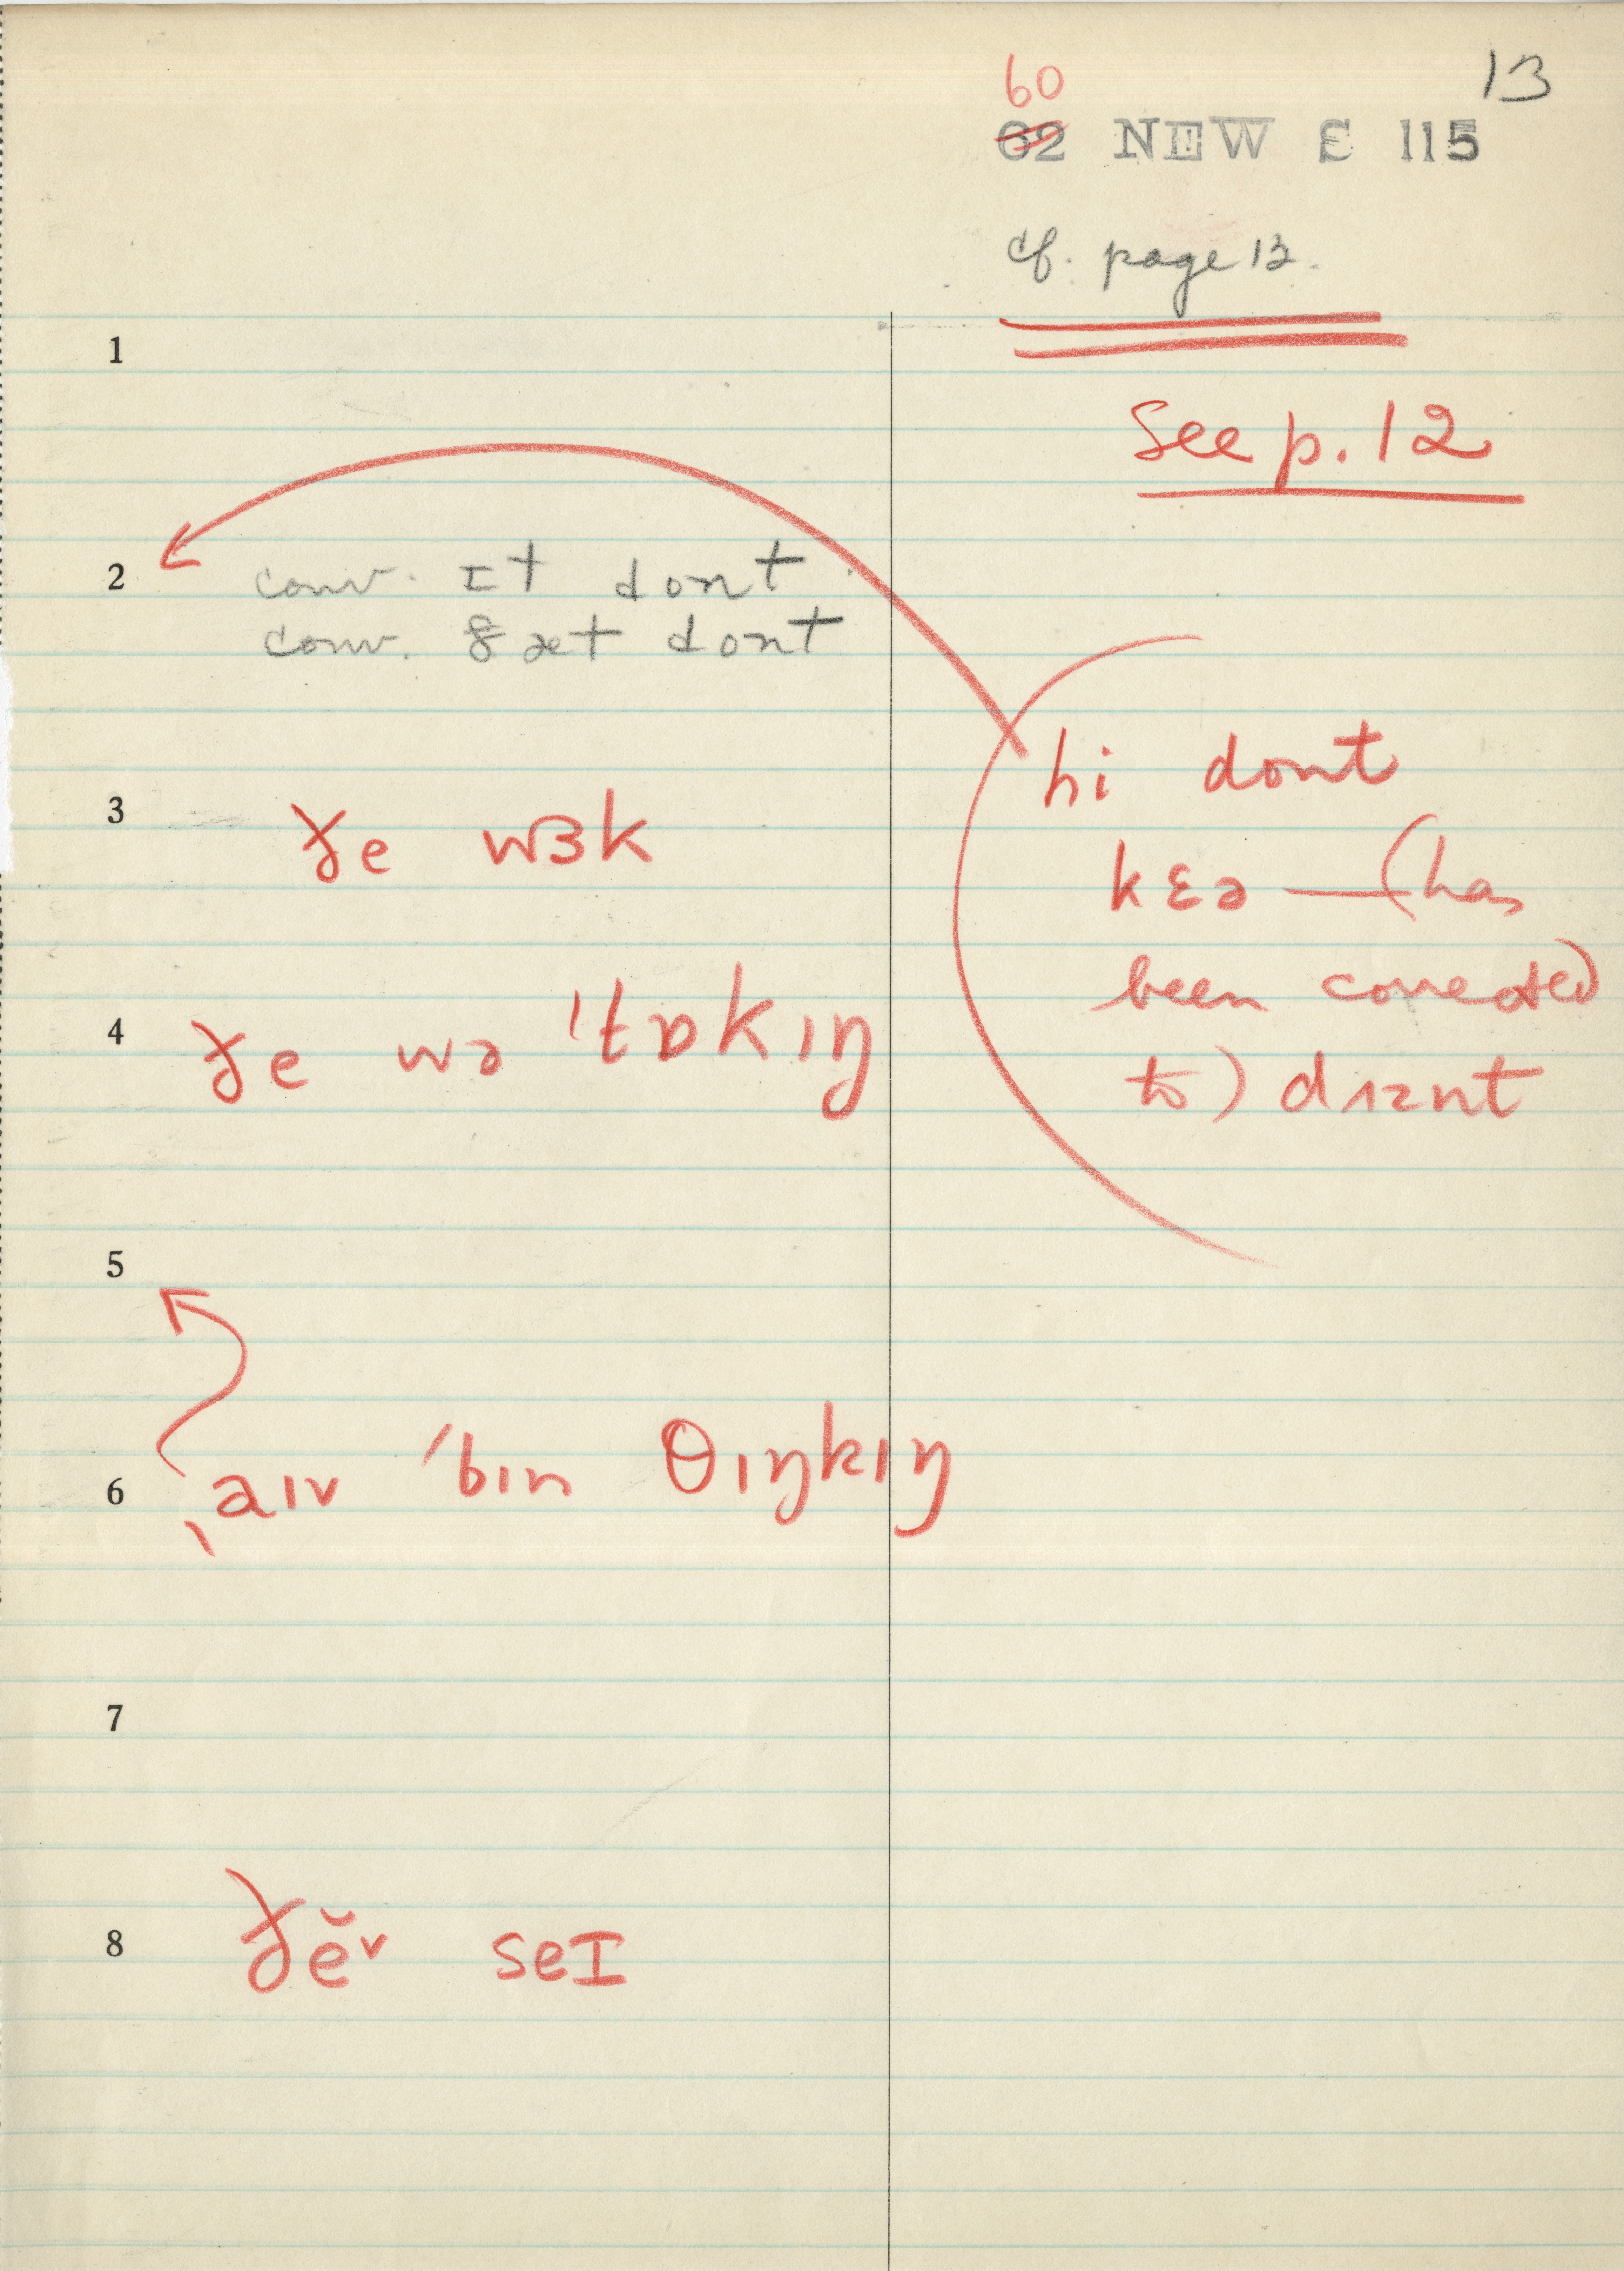 13
60
02 NEW E 115
cf. page 12.
See p. 12
1
2 conv. ɪt dont
conv. ðæt dont
hi dont
3 ðe wɜk
kɛə — (has
been corrected
4 ðe wə ˈtɒkɪŋ
to) dɪznt
5
6 ˌaɪv ˈbɪn θɪŋkɪŋ
7
8 ðĕˇ seɪ